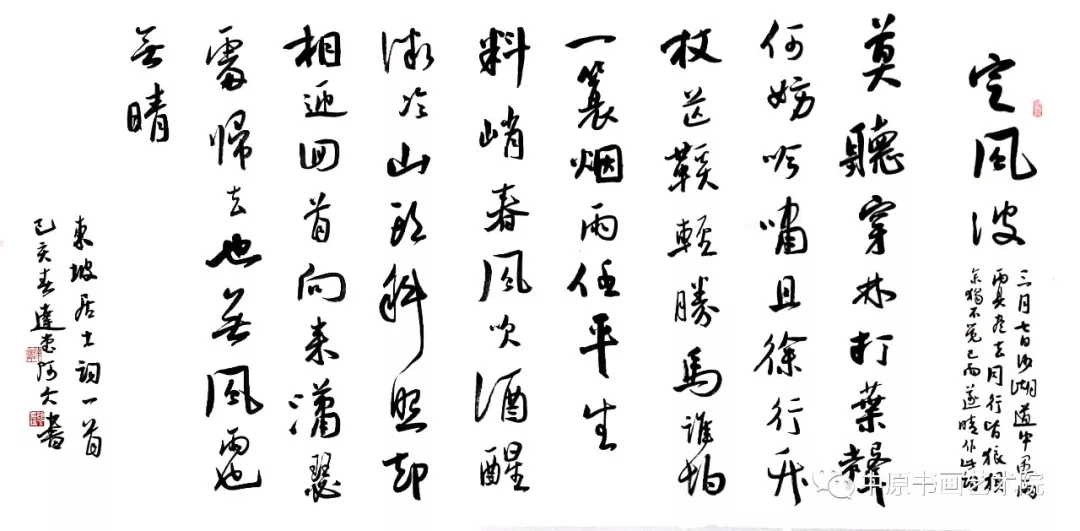 定風波
三月七日沙湖道中遇雨
雨具先去同行皆狼狽
余獨不覺已而遂晴作此詞
莫聽穿林打葉聲
何妨吟嘯且徐行竹
杖芒鞋輕勝馬誰怕
一蓑烟雨任平生
料峭春風吹酒醒
微冷山頭斜照却
相迎回首向来瀟瑟
處歸去也無風雨也
無晴
東坡居士詞一首
己亥春達阿書
中原书画艺术院